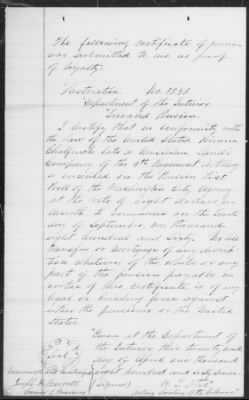 The following certificate of pension
was submitted to me as proof
of loyalty:
"Restoration. No.
"Department of the Interior.
"Invalid Pension.
I certify that in conformity with
the law of the United States Hiram
Chalfinch late a Musician Land's
Company of the 4th Regiment Artillery
is inscribed on the Pension List
Roll of the Washington City Agency
at the rate of eight dollars per
month to commence on the fourth
day of September, one thousand
eight hundred and sixty. No
transfer or mortgage of any descrip-
tion whatever, of the whole or any
part of the pension payable in
virtue of this certificate, is of any
legal or binding force against
either the pensioner or the United
States.
"Given at the Department of
the Interior this twenty second
day of April one thousand
eight hundred and sixty seven
Seal
Joseph H. Barrett
(Signed) W. T. Otto
Acting Secretary of the Interior"